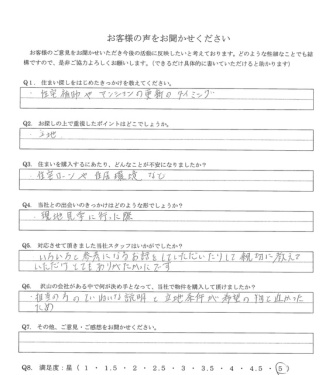 お客様の声をお聞かせください
お客様のご意見をお聞かせいただき今後の活動に反映したいと考えております。どのような些細なことでも結
構ですので、是非ご協力よろしくお願いします。(できるだけ具体的に書いていただけると助かります)
Q1. 住まい探しをはじめたきっかけを教えてください。
・住宅補助やマンションの更新のタイミング
Q2. お探しの上で重視したポイントはどこでしょうか。
・立地
Q3. 住まいを購入するにあたり、どんなことが不安になりましたか?
・住宅ローンや住居環境など
Q4. 当社との出会いのきっかけはどのような形でしょうか?
・現地見学に行った際
Q5. 対応させて頂きました当社スタッフはいかがでしたか?
いろいろと参考になるお話をしていただいたりして親切に教えて
いただけてとてもありがたかったです
Q6. 沢山の会社がある中で何が決め手となって、当社で物件を購入して頂けましたか?
・担当の方のていねいな説明と立地条件が希望の物と近かった
ため
Q7. その他、ご意見・ご感想をお聞かせください。
Q8. 満足度:星(1・1.5・2・2.5・3・3.5・4・4.5・5)